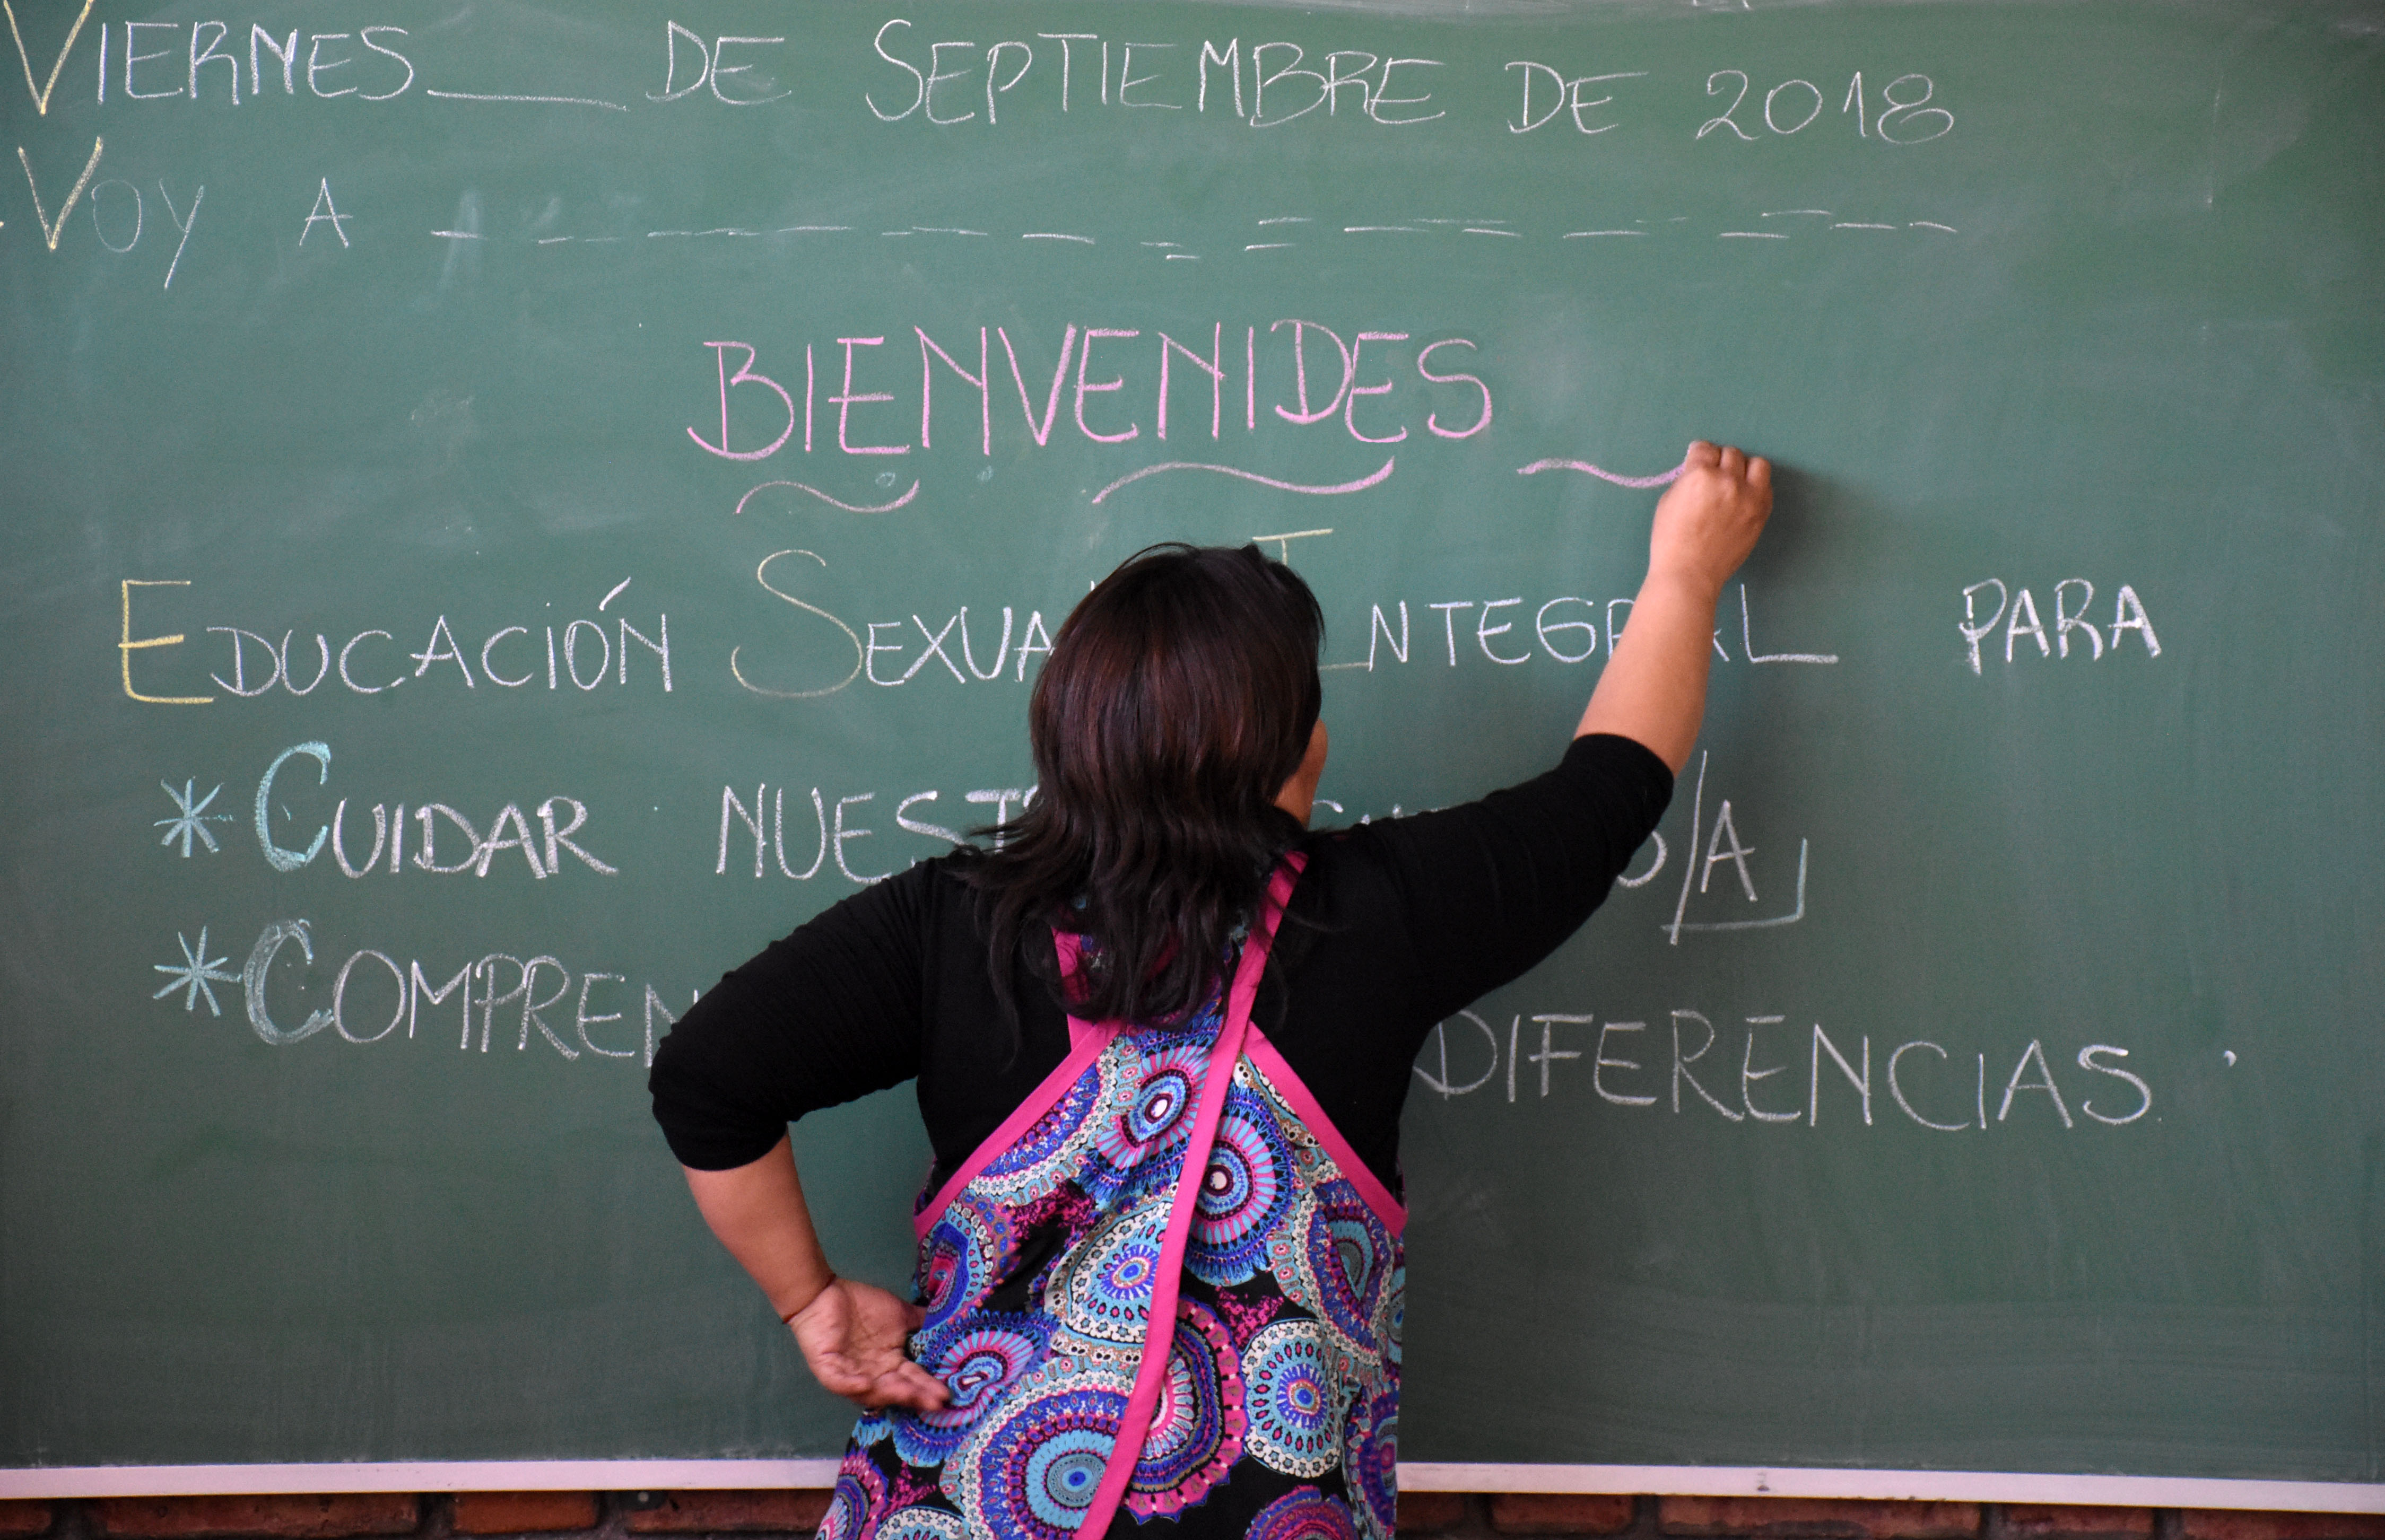 VIERNES____ DE SEPTIEMBRE DE 2018
VOY A _ _ _ _ _ _ _ _ _ _ _ _ _ _
BIENVENIDES
EDUCACIÓN SEXUAL INTEGRAL PARA
* CUIDAR
* DIFERENCIAS.